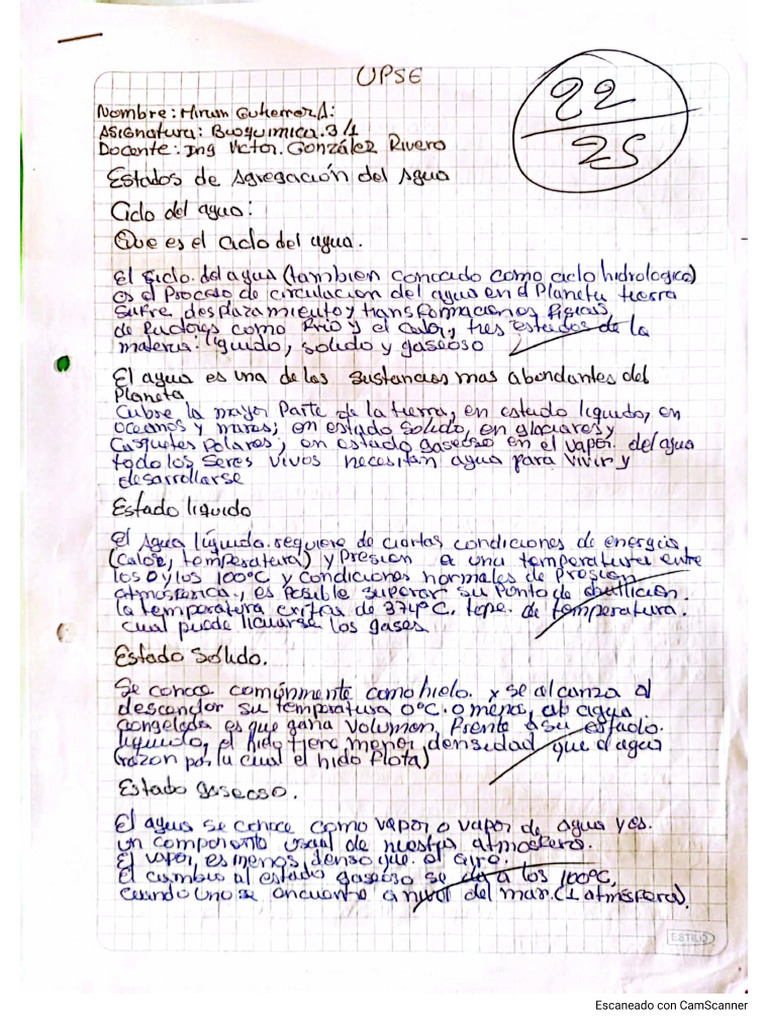 UPSE
22
25
Nombre: Hiran Gutierrez A:
Asignatura: Bioquimica. 3/1
Docente: Ing Victor. González Rivero
Estados de Agregación del Agua
Ciclo del agua:
Que es el Ciclo del agua.
El Ciclo. del agua (tambien conocado como ciclo hidrologico)
es el Proceso de circulacion del agua en el Planeta tierra
sufre desplazamiento y transformaciones fisicas,
de Factores como Frio y el Calor, tres estados de la
materia: liquido, solido y gaseoso
El agua es una de las sustancias mas abondantes del
Planeta
Cubre la mayor Parte de la tierra, en estado liquido, en
oceanos y mares; en estado Solido, en glaciares y
Casquetes Polares; en estado gaseoso en el vapor. del agua
todo los Seres vivos necesitan agua para Vivir y
desarrollarse
Estado liquido
El Agua líquida. requiere de ciertas condiciones de energia
(Calor, temperatura) y Presion a una temperatura entre
los 0 y los 100°C y condiciones normales de Presion
atmosferica, es Posible superar su Punto de ebullicion.
la temperatura critica de 374°C, tope. de temperatura.
cual puede licuarse los gases
Estado Sólido.
Se conoce comúnmente como hielo. y se alcanza al
descender su temperatura 0°C. o menos, agua
congelada es que gana Volumen, Frente a su estado.
liquido, el hielo tiene menor densidad que el agua
(razon por la cual el hielo flota)
Estado gaseoso.
El agua se conoce como vapor o vapor de agua y es.
un componente usual de nuestra atmosfera.
El vapor, es menos denso que. el aire.
El cambio al estado gaseoso se da a los 100°C,
cuando uno se encuentra a nivel del mar. (1 atmósfera).
ESTILO
Escaneado con CamScanner